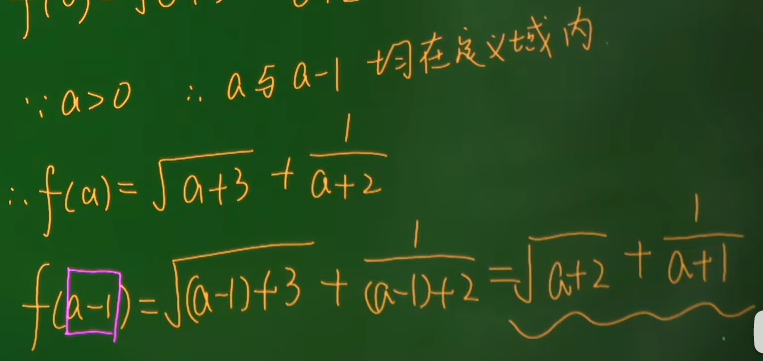 ∵ a>0 ∴ a与a-1 均在定义域内.
∴ f(a)=√(a+3) + 1/(a+2)
f(a-1)=√((a-1)+3) + 1/((a-1)+2) =√(a+2) + 1/(a+1)